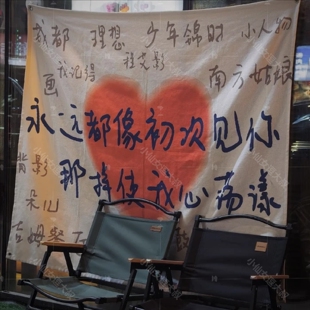 成都 理想 少年锦时 小人物
我记得 程艾影
画 南方姑娘
永远都像初次见你
那样使我心荡漾
背影
朵儿